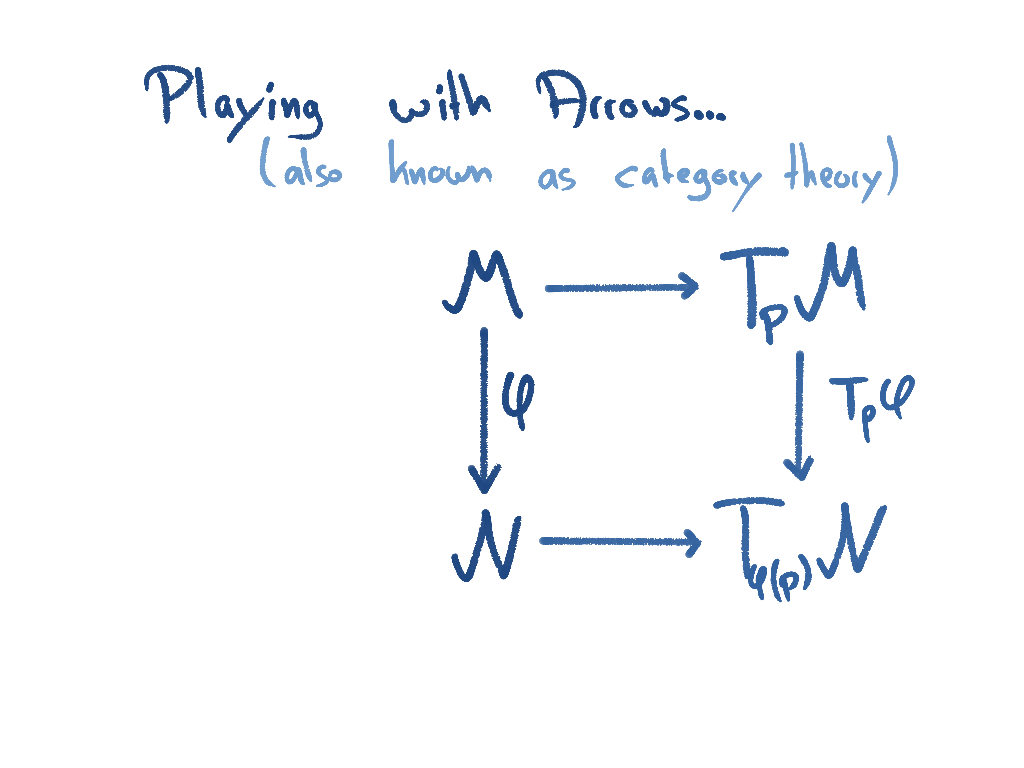 Playing with Arrows...
(also known as category theory)
M → TpM
φ Tpφ
N → Tφ(p)N